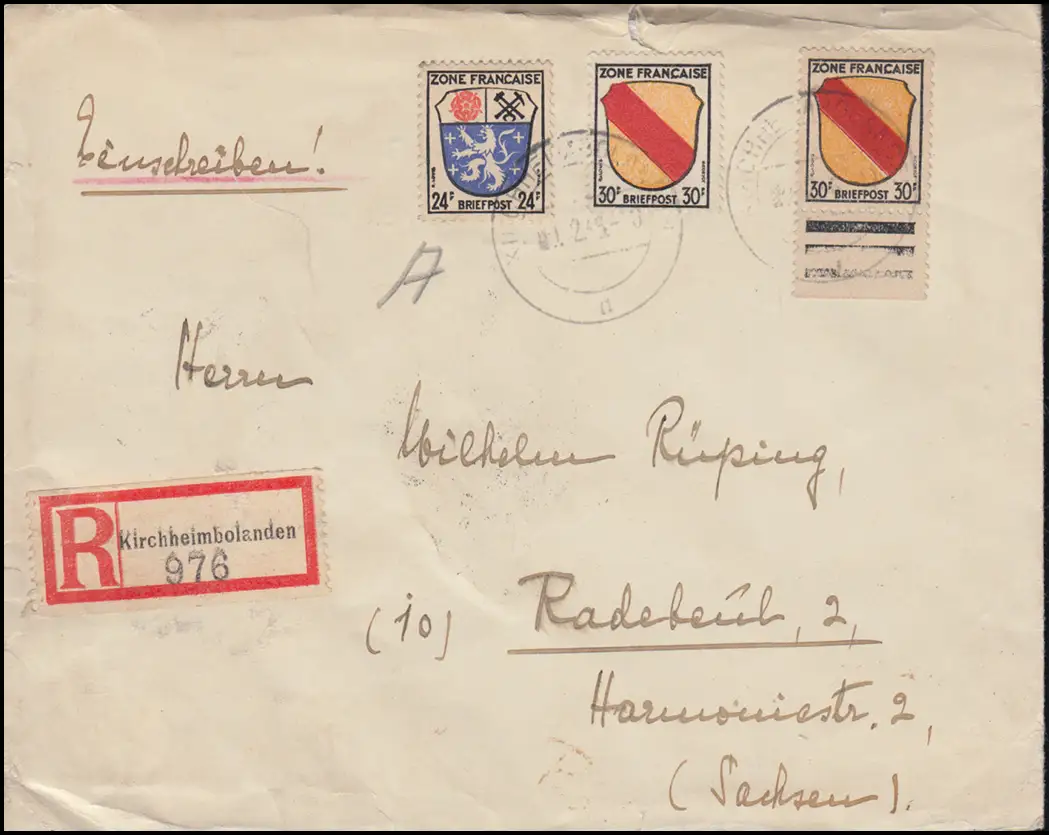 Einschreiben!
ZONE FRANCAISE
24F BRIEFPOST 24F
ZONE FRANCAISE
30F BRIEFPOST 30F
ZONE FRANCAISE
30F BRIEFPOST 30F
A
Herrn
Wilhelm Rüping,
R Kirchheimbolanden
976
(10) Radebeul, 2,
Harmoniestr. 2,
(Sachsen).